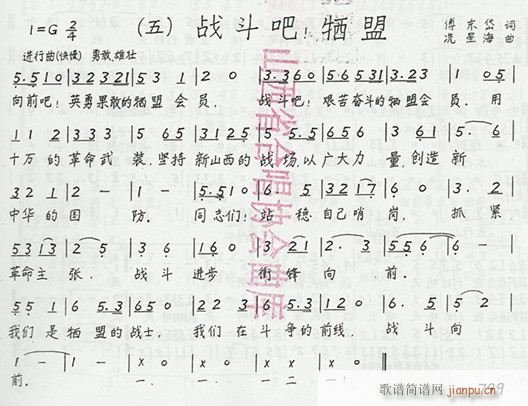 1=G 2/4 (五) 战斗吧!牺盟 傅东岱 词
冼星海 曲
进行曲(快慢) 勇敢,雄壮
5.5 1 0 | 3 2 3 2 1 | 5 3 1 | 2 0 | 3.3 6 0 | 5 6 5 3 1 | 3.2 3 | 1 0 5 |
向前吧!英勇果敢的牺盟会员. 战斗吧!艰苦奋斗的牺盟会员.用
1 1 2 | 3 3 3 | 5 6 5 | 3 1 2 5 | 5 5.5 | 6 5 6 | 3 2 1 | 5. 6 |
十万的革命武装,坚持新山西的战场,以广大力量,创造新
3 2 1 | 2 - | 1 - | 5.5 1 0 | 6. 5 | 3 2 1 7 | 6 0 | 3. 2 |
中华的国防. 同志们!站稳自己哨岗, 抓紧
5 3 1 3 | 2 5 | 3 6 | 1 6 0 | 3 2 1 | 2. 3 | 5 5 6 | 6 - |
革命主张. 战斗进步衝锋向前.
5 5 1 | 6 5.3 | 6 5 0 | 2 2 3 | 6 5.3 | 1 2 0 | 6. 5 | 5 2 |
我们是牺盟的战士, 我们在斗争的前线, 战斗向
1 - | 1 - | x 0 | x 0 | x x | x 0 ‖
前. 一. 一. 一二一!
山西省合唱协会曲库
799
歌谱简谱网
jianpu.cn